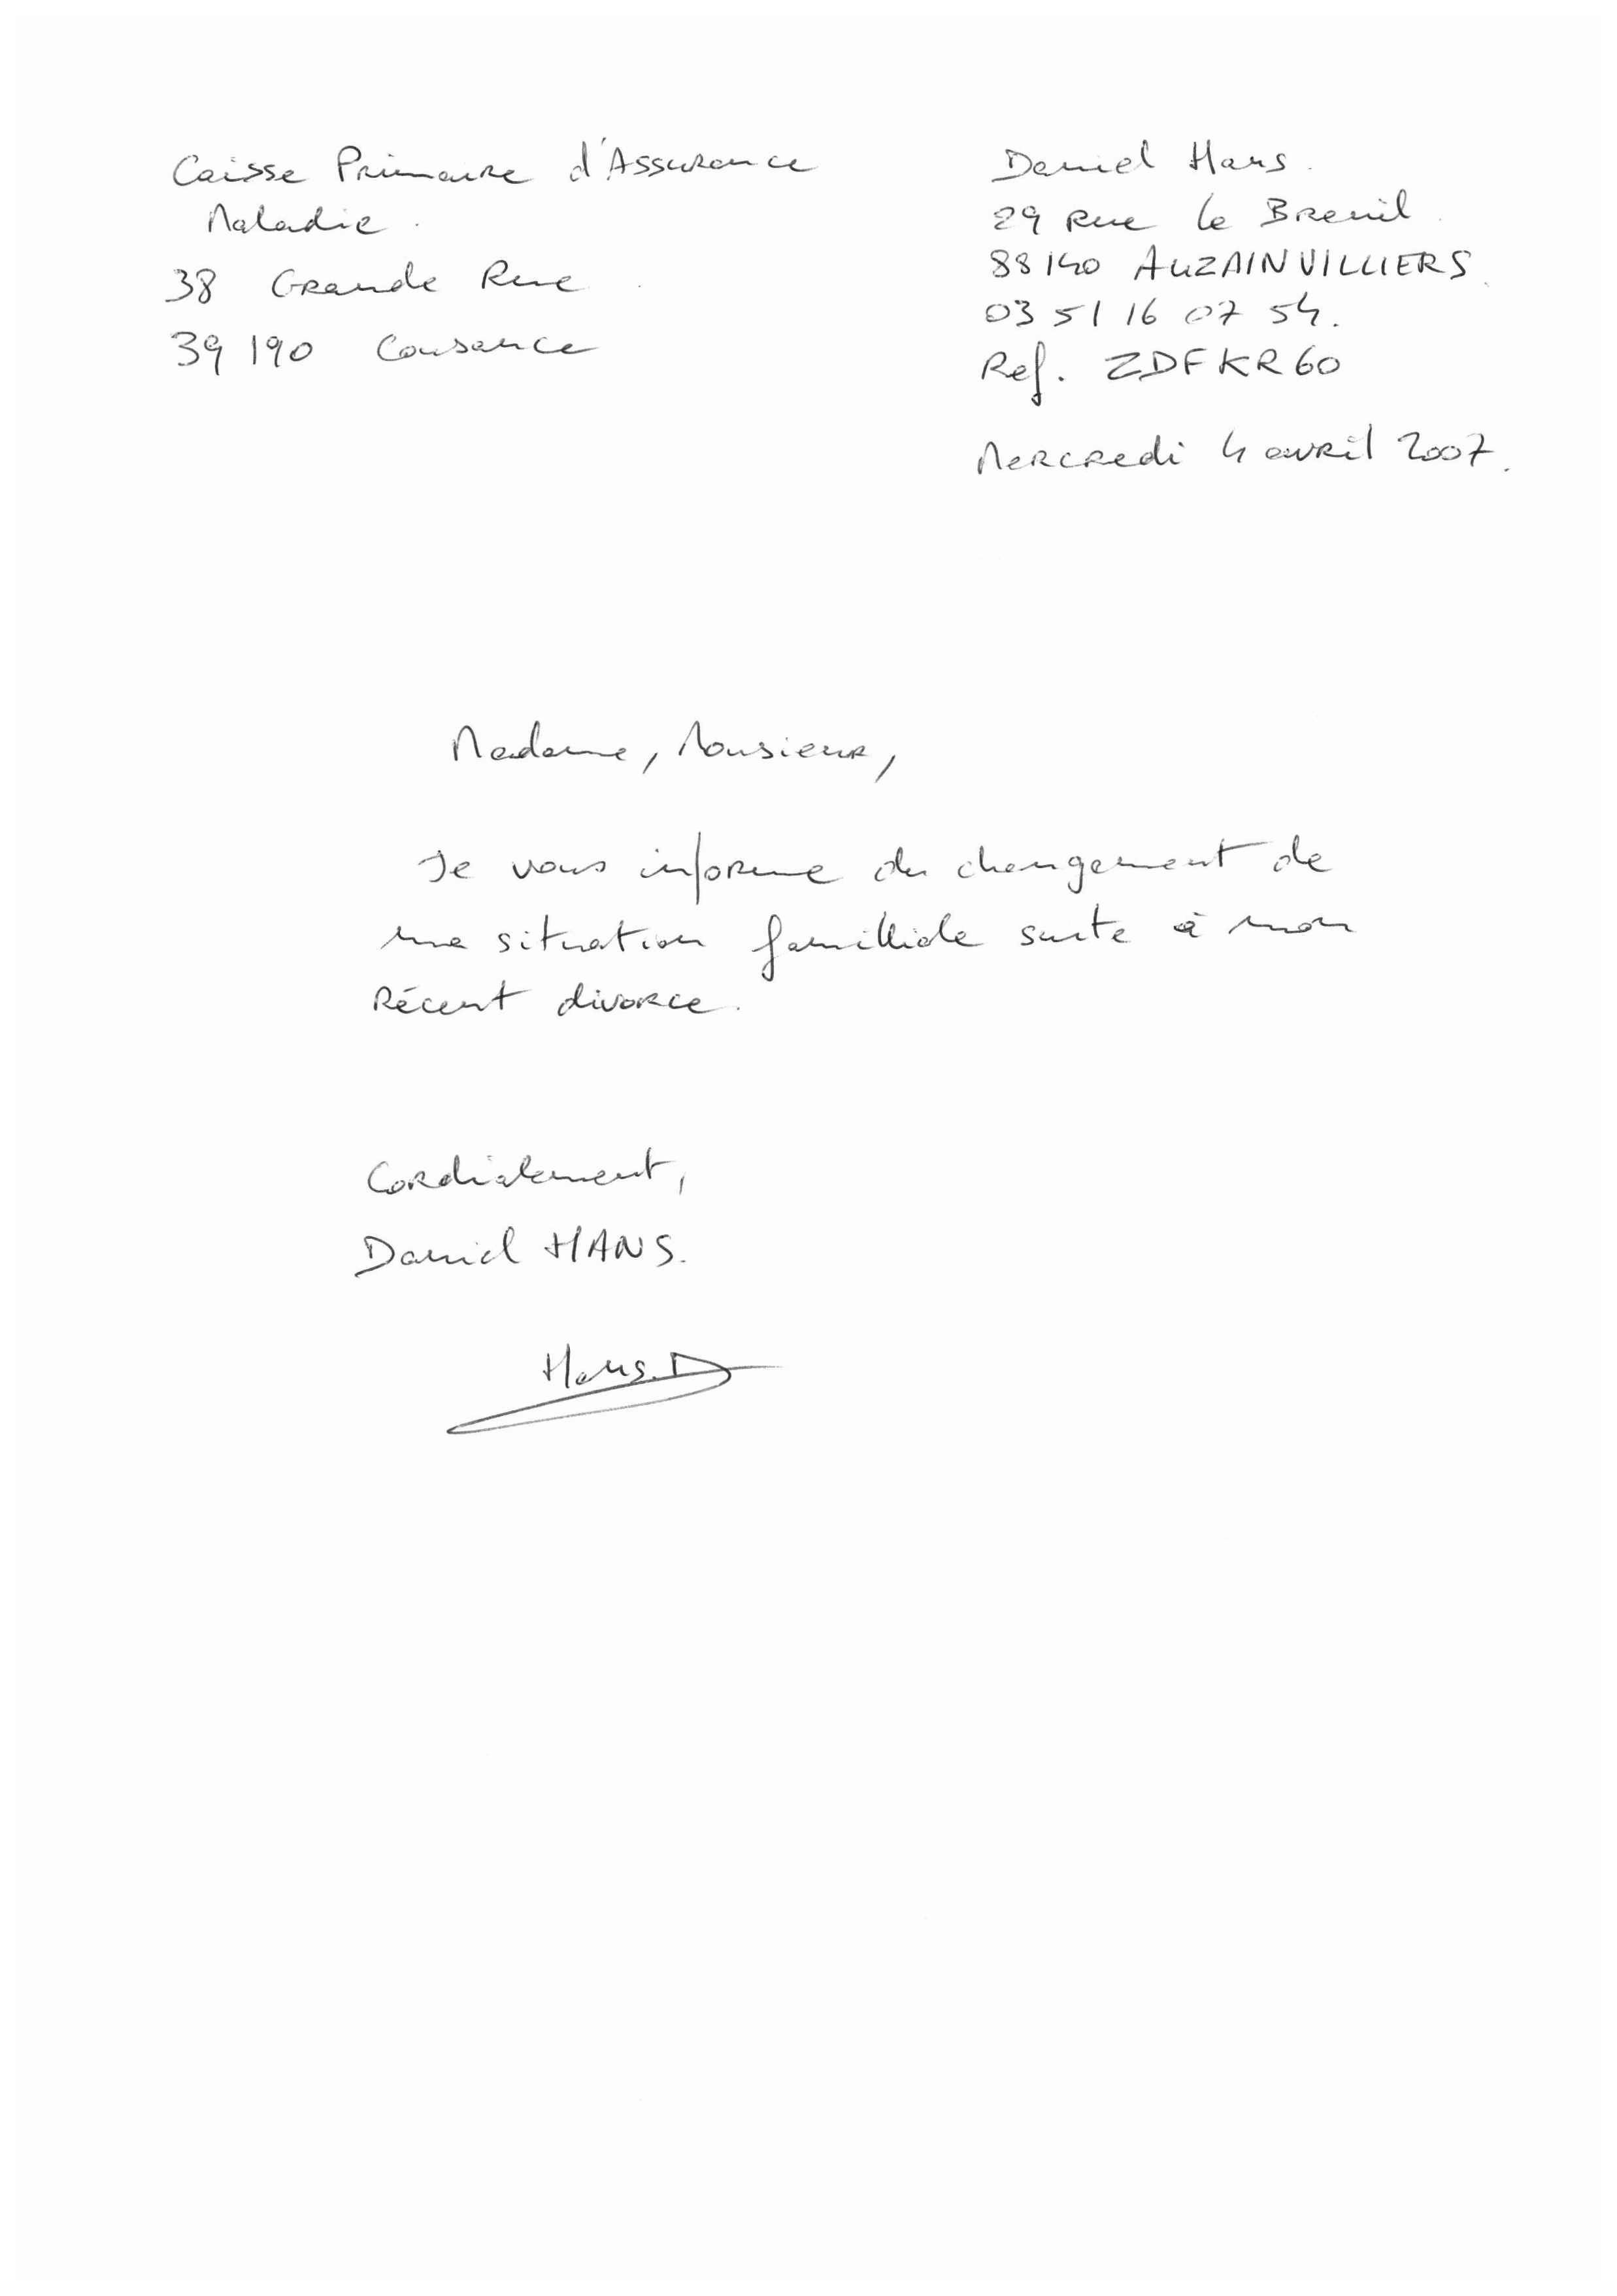 Caisse Primaire d'Assurance
Maladie.
38 Grande Rue.
39190 Cousance
Daniel Hans.
29 Rue le Breuil.
88140 AUZAINVILLIERS.
03 51 16 07 54.
Ref. ZDFKR60
Mercredi 4 avril 2007.
Madame, Monsieur,
Je vous informe du changement de
ma situation familliale suite à mon
Récent divorce.
Cordialement,
Daniel HANS.
Hans.D